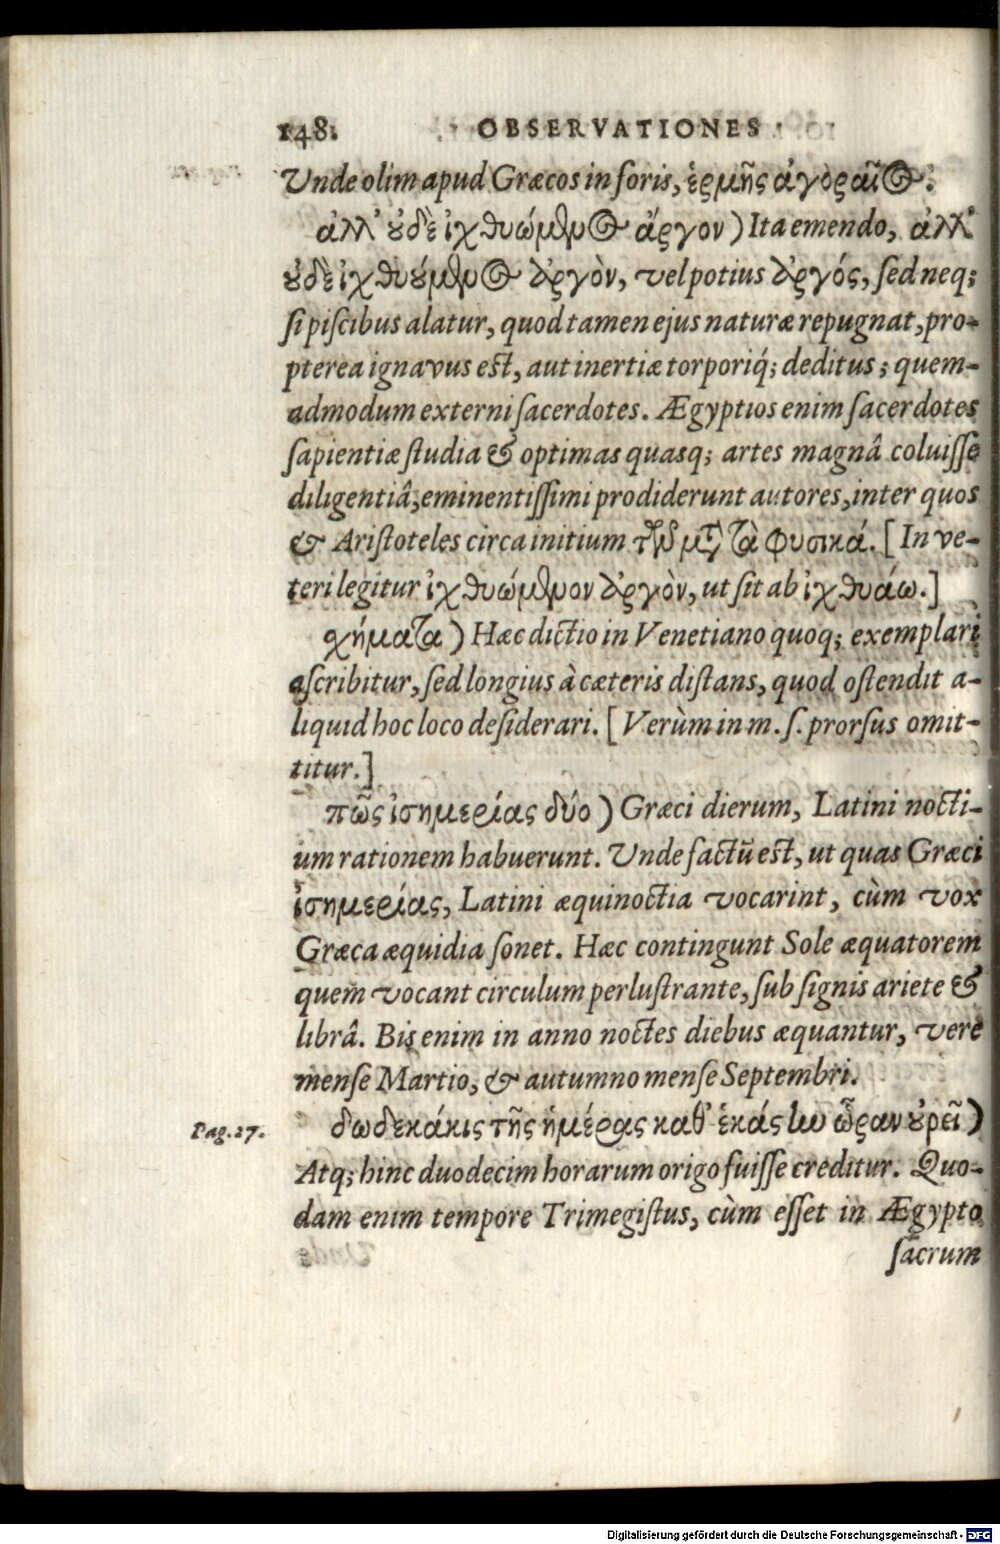 148. OBSERVATIONES
Unde olim apud Græcos in foris, ἑρμῆς ἀγοραῖος.
ἀλλ' οὐδὲ ἰχθυώμενος ἄργον) Ita emendo, ἀλλ'
οὐδὲ ἰχθυούμενος ἀργὸν, vel potius ἀργός, sed neq;
si piscibus alatur, quod tamen ejus naturæ repugnat, pro-
pterea ignavus est, aut inertiæ torporiq́; deditus; quem-
admodum externi sacerdotes. Ægyptios enim sacerdotes
sapientiæ studia & optimas quasq; artes magnâ coluisse
diligentiâ, eminentissimi prodiderunt autores, inter quos
& Aristoteles circa initium τῶν μετὰ τὰ φυσικά. [In ve-
teri legitur ἰχθυώμενον ἀργὸν, ut sit ab ἰχθυάω.]
χήματα) Hæc dictio in Venetiano quoq; exemplari
ascribitur, sed longius à cæteris distans, quod ostendit a-
liquid hoc loco desiderari. [Verùm in m. s. prorsus omit-
titur.]
πῶς ἰσημερίας δύο) Græci dierum, Latini nocti-
um rationem habuerunt. Unde factũ est, ut quas Græci
ἰσημερίας, Latini æquinoctia vocarint, cùm vox
Græca æquidia sonet. Hæc contingunt Sole æquatorem
quem vocant circulum perlustrante, sub signis ariete &
librâ. Bis enim in anno noctes diebus æquantur, vere
mense Martio, & autumno mense Septembri.
Pag. 27. δωδεκάκις τῆς ἡμέρας καθ' ἑκάστην ὥραν οὐρεῖ)
Atq; hinc duodecim horarum origo fuisse creditur. Quo-
dam enim tempore Trimegistus, cùm esset in Ægypto
sacrum
Digitalisierung gefördert durch die Deutsche Forschungsgemeinschaft - DFG